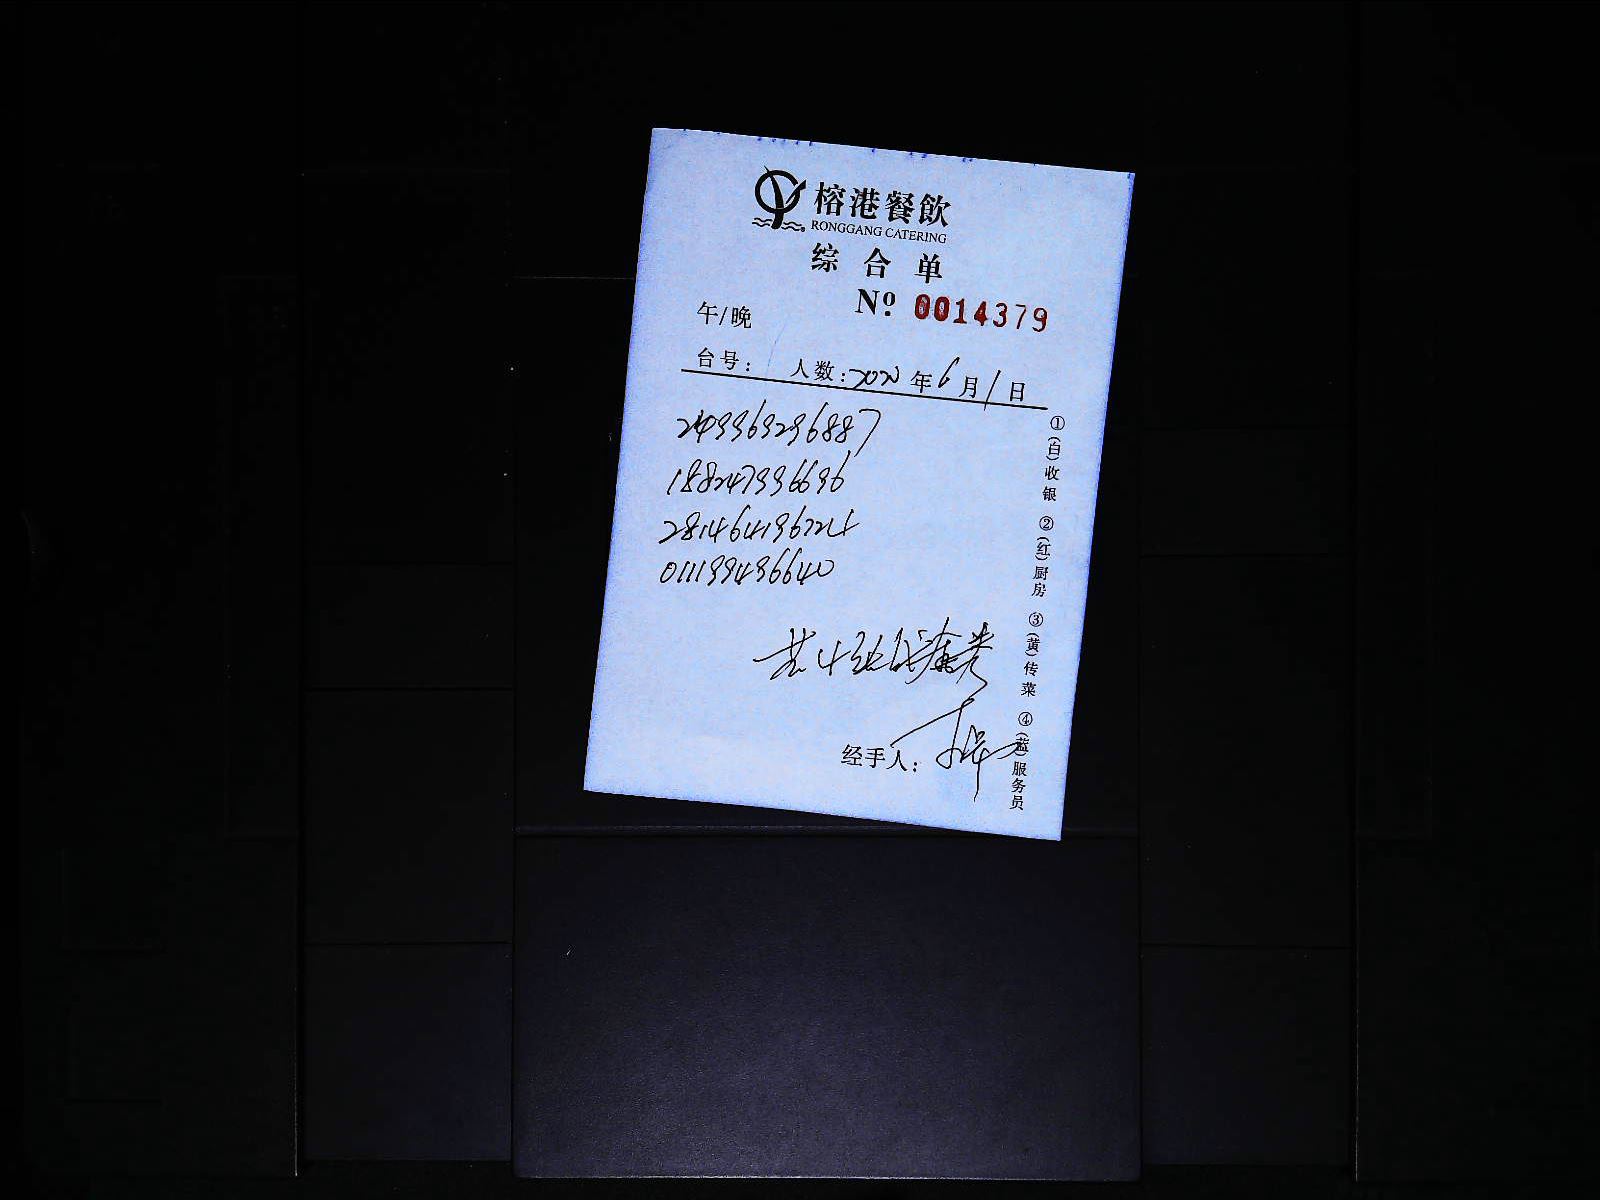 榕港餐飲
RONGGANG CATERING
综合单
Nº: 0014379
午/晚
台号: 人数: 年6月1日
249969296887
188247996696
281464196724
011199496640
共4张代金券
经手人:
①(白)收银 ②(红)厨房 ③(黄)传菜 ④(蓝)服务员